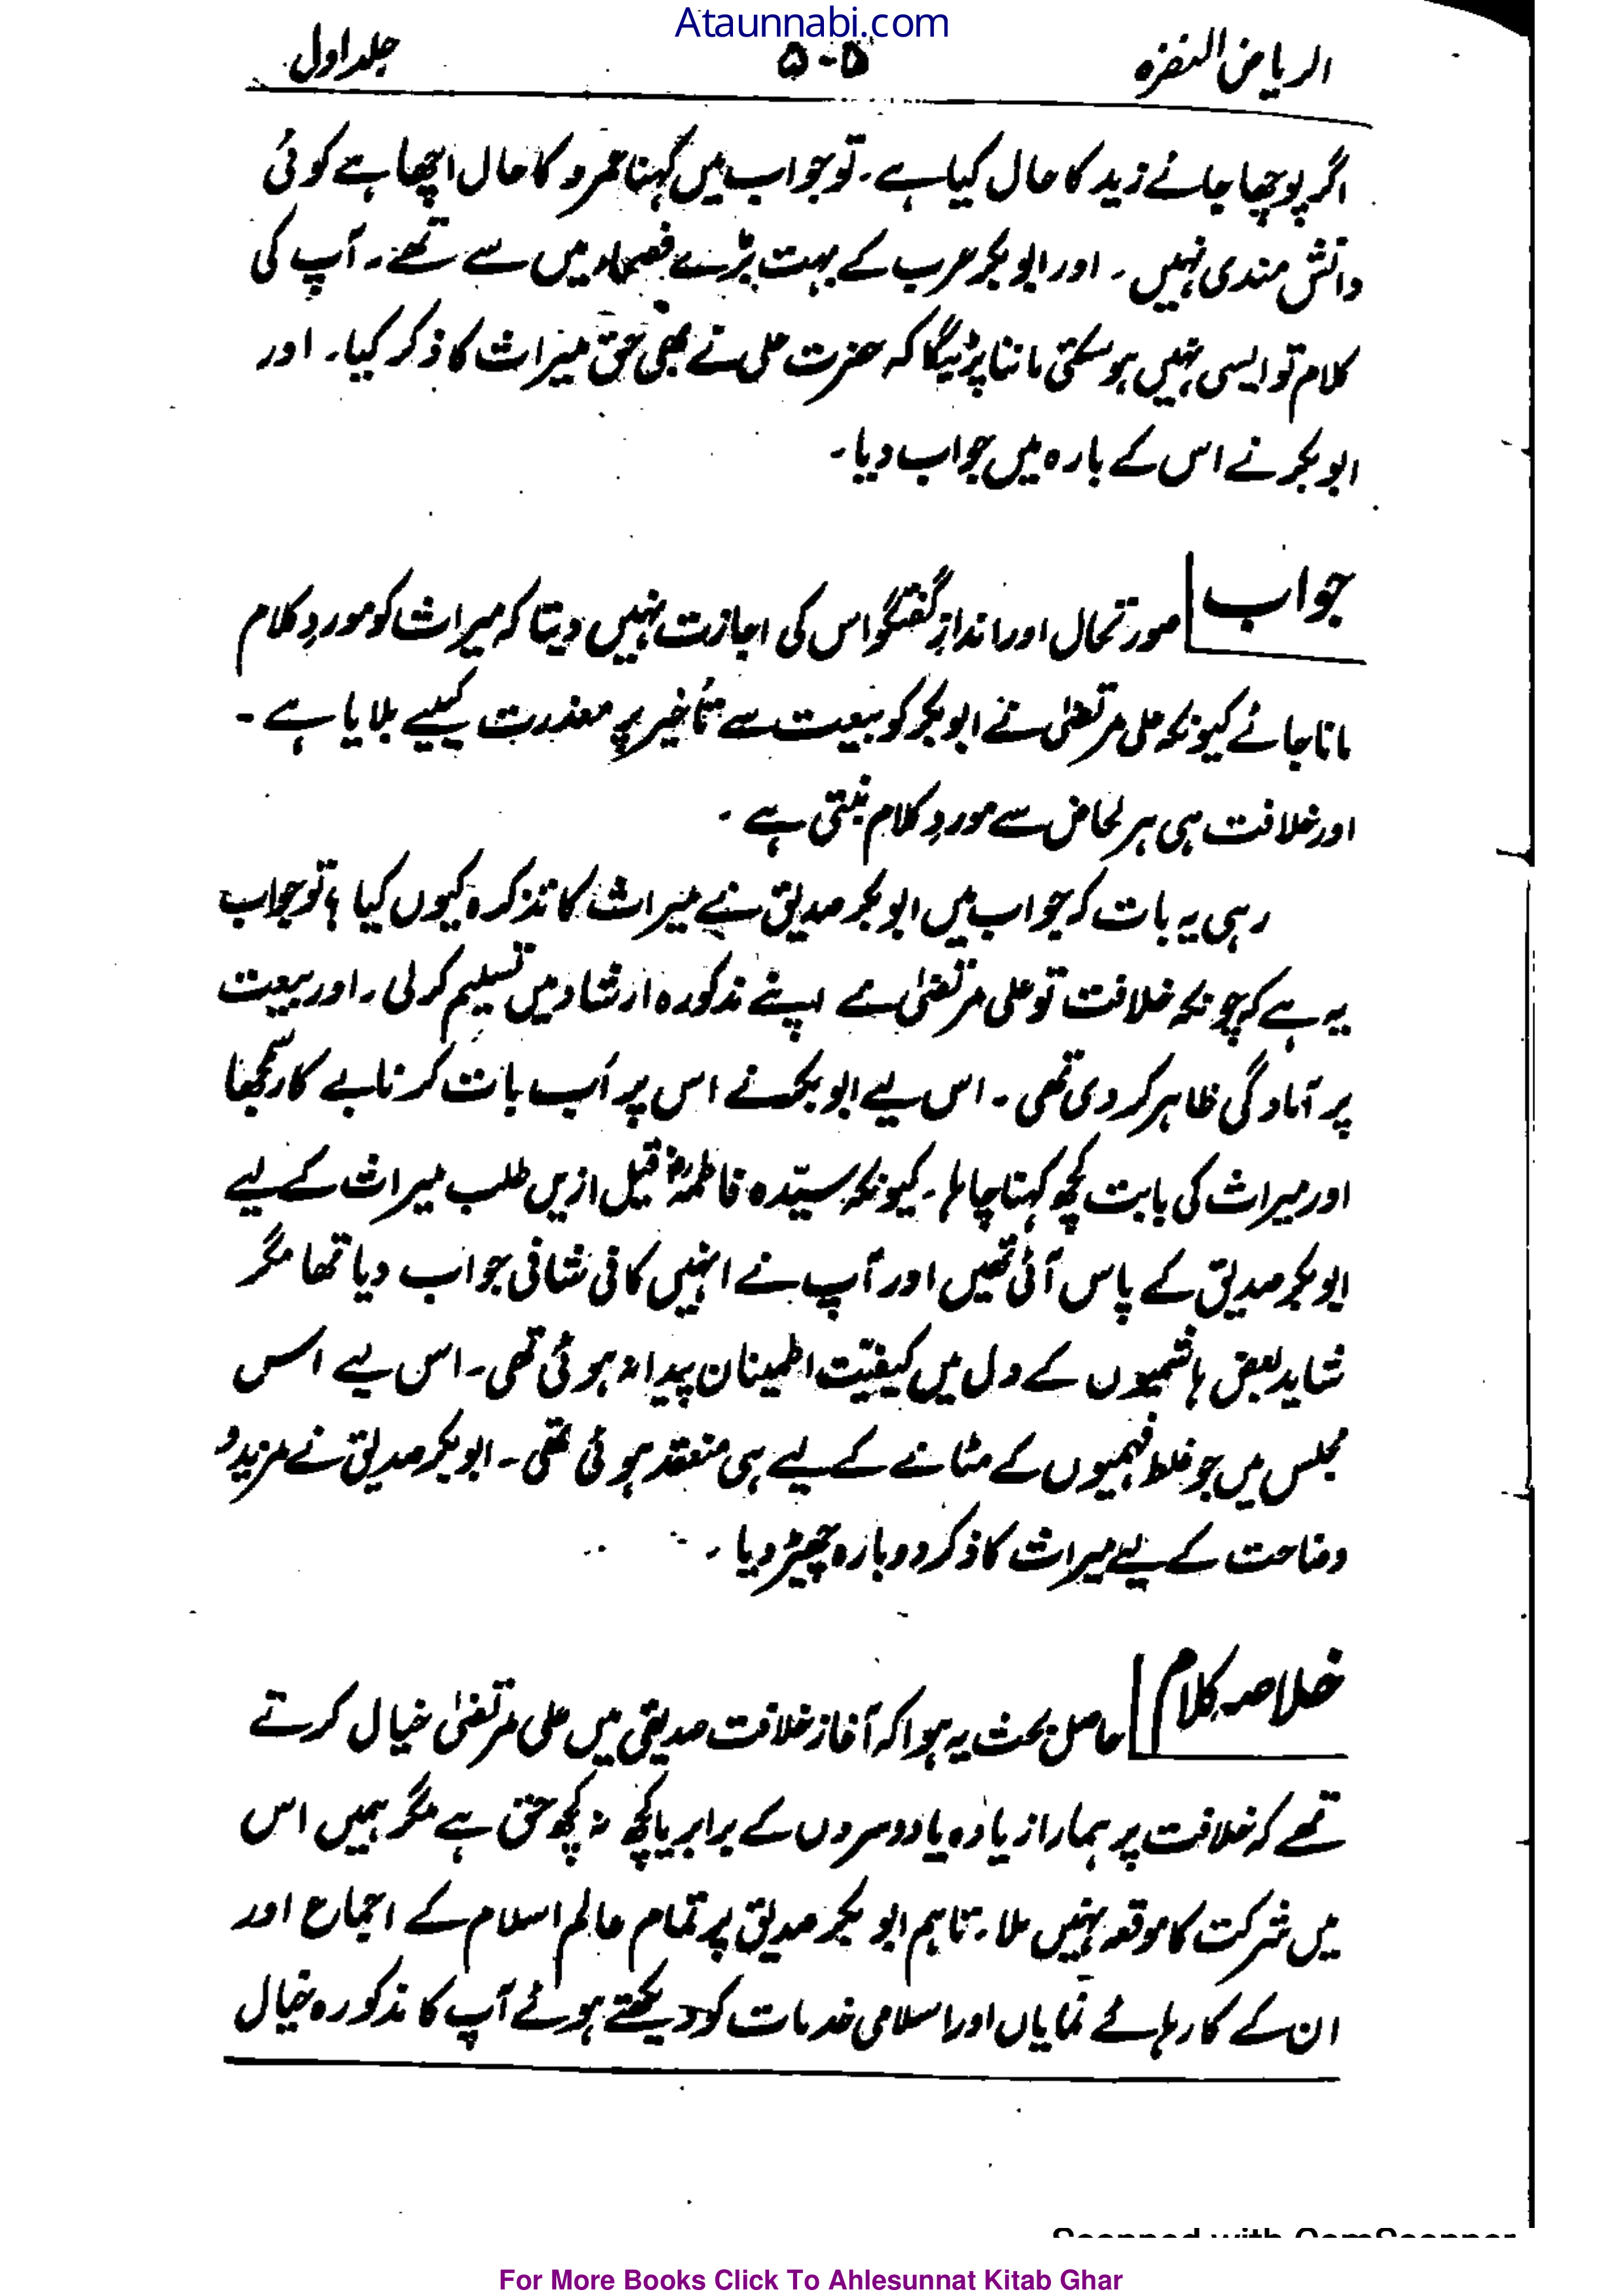 Ataunnabi.com
الریاض النضرہ ۵۰۵ جلد اول
اگر پوچھا جائے زید کا حال کیا ہے۔ تو جواب میں کہنا عمرو کا حال اچھا ہے کوئی
دانش مندی نہیں۔ اور ابوبکر عرب کے بہت بڑے فصحاء میں سے تھے۔ آپ کی
کلام تو ایسی نہیں ہو سکتی ماننا پڑیگا کہ حضرت علی نے بھی حق میراث کا ذکر کیا۔ اور
ابوبکر نے اس کے بارہ میں جواب دیا۔
جواب صورتحال اور انداز گفتگو اس کی اجازت نہیں دیتا کہ میراث کو موردِ کلام
مانا جائے کیونکہ علی مرتضیٰ نے ابوبکر کو بیعت سے تأخیر پر معذرت کیلیے بلایا ہے۔
اور خلافت ہی ہر لحاض سے موردِ کلام بنتی ہے۔
رہی یہ بات کہ جواب میں ابوبکر صدیق نے میراث کا تذکرہ کیوں کیا ؟ تو جواب
یہ ہے کہ چونکہ خلافت تو علی مرتضیٰ نے اپنے مذکورہ ارشاد میں تسلیم کر لی۔ اور بیعت
پر آمادگی ظاہر کر دی تھی۔ اس لیے ابوبکر نے اس پر اَب بات کرنا بے کار سمجھا
اور میراث کی بابت کچھ کہنا چاہا۔ کیونکہ سیّدہ فاطمہؓ قبل ازیں طلب میراث کے لیے
ابوبکر صدیق کے پاس آئی تھیں اور آپ نے انہیں کافی شافی جواب دیا تھا مگر
شاید بعض ہاشمیوں کے دل میں کیفیّت اطمینان پیدا نہ ہوئی تھی۔ اس لیے اس
مجلس میں جو غلط فہمیوں کے مٹانے کے لیے ہی منعقد ہوئی تھی۔ ابوبکر صدیق نے مزید و
وضاحت کے لیے میراث کا ذکر دوبارہ چھیڑ دیا۔
خلاصہ کلام حاصل بحث یہ ہوا کہ آغاز خلافت صدیقی میں علی مرتضیٰ خیال کرتے
تھے کہ خلافت پر ہمارا زیادہ یا دوسروں کے برابر یا کچھ نہ کچھ حق ہے مگر ہمیں اس
میں شرکت کا موقعہ نہیں ملا۔ تاہم ابوبکر صدیق پر تمام عالم اسلام کے اجماع اور
ان کے کارہائے نمایاں اور اسلامی خدمات کو دیکھتے ہوئے آپ کا مذکورہ خیال
Scanned with CamScanner
For More Books Click To Ahlesunnat Kitab Ghar